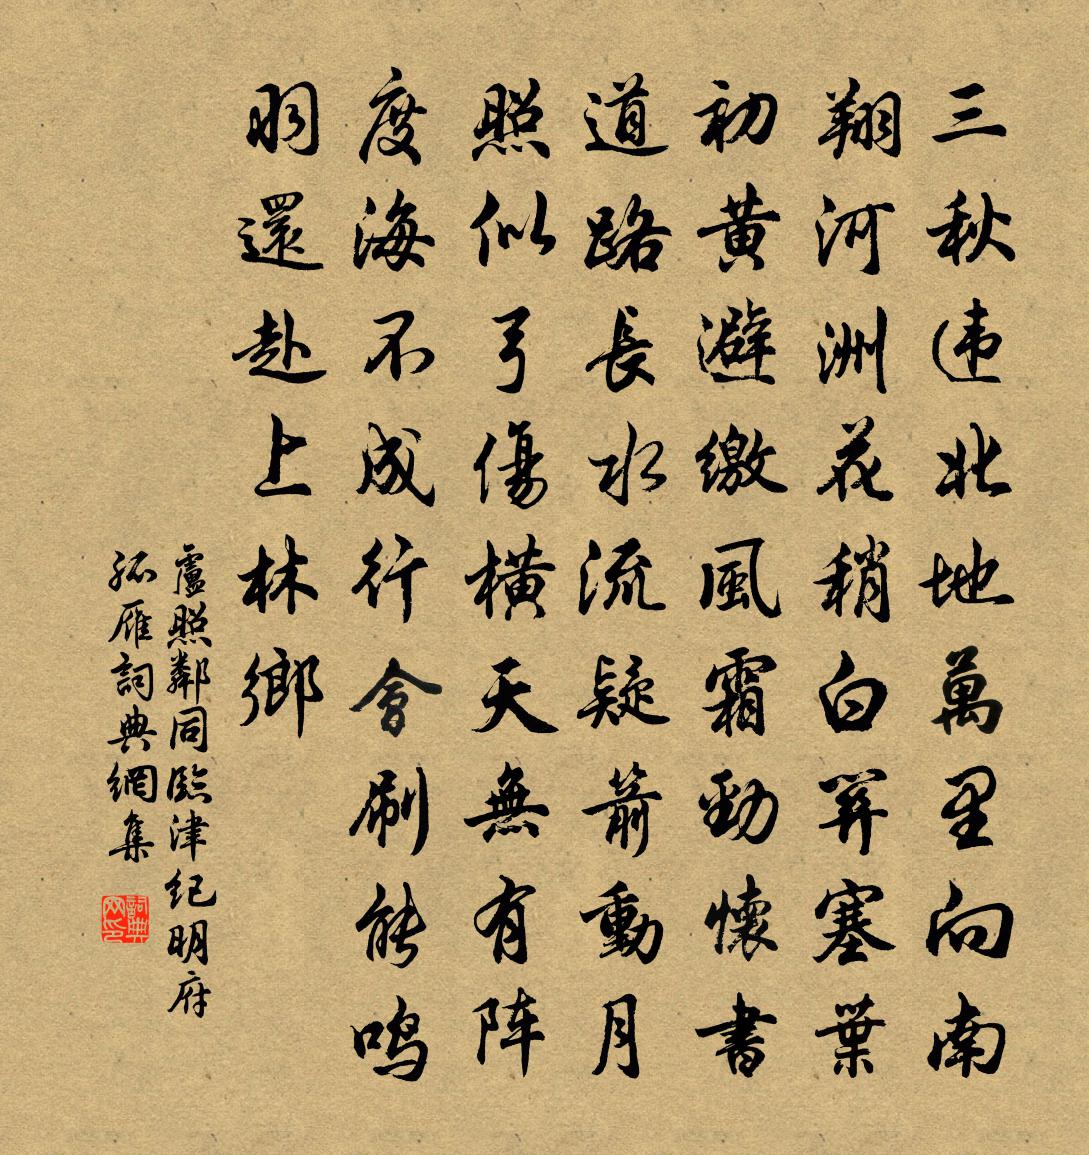 三秋违北地萬里向南
翔河洲花稍白關塞葉
初黃避繳風霜勁懷書
道路長水流疑箭動月
照似弓傷橫天無有阵
度海不成行會刷能鸣
羽還赴上林鄉
盧照鄰同臨津纪明府
孤雁詞典網集
詞典网印